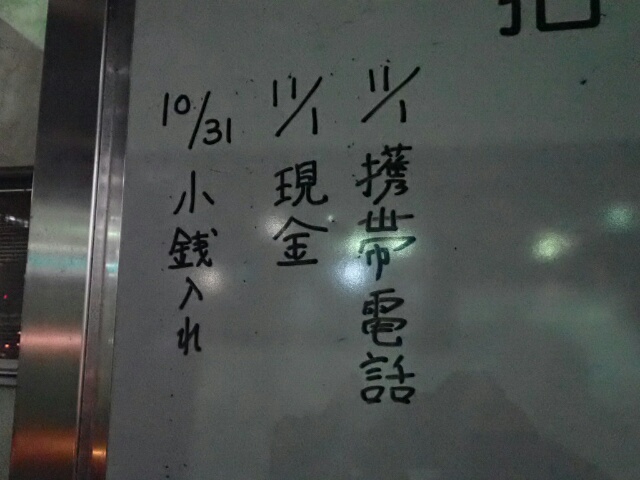 11/1 携帯電話
11/1 現金
10/31 小銭入れ